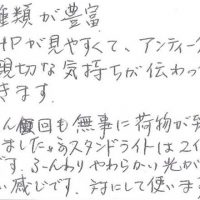 種類が豊富
HPが見やすくて、アンティーク
親切な気持ちが伝わっ
きます。
ん 回も無事に荷物が
ましたよ スタンドライトは2イ
です。ふーんわりやわらかい光が
い感じです。 にして使いま